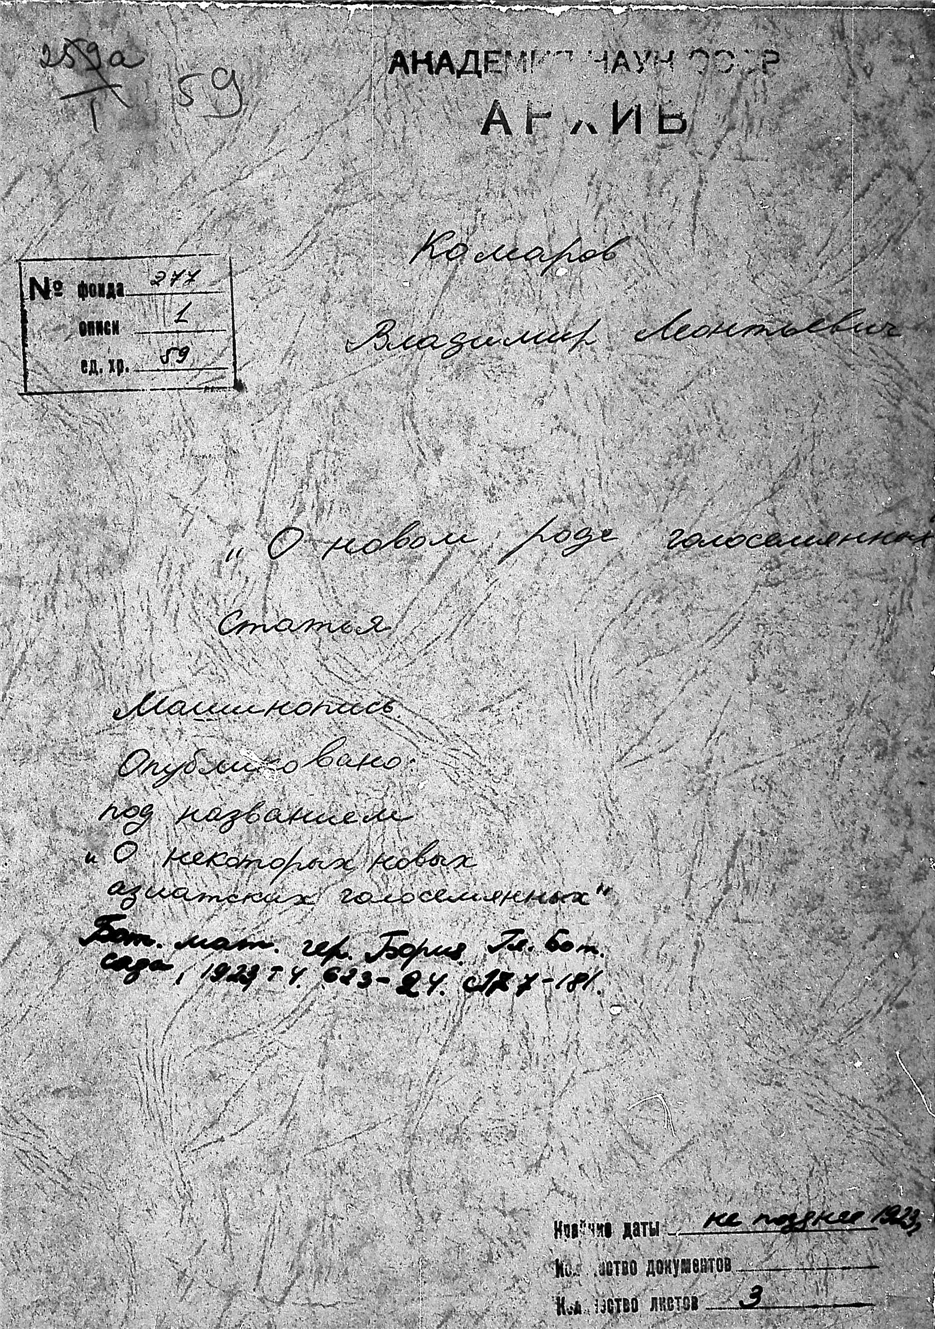 259а
1
59
АКАДЕМИЯ НАУК СССР
АРХИВ
№ фонда 277
описи 1
ед. хр. 59
Комаров
Владимир Леонтьевич
„О новом роде голосемянных
Статья
Машинопись
Опубликовано:
под названием
„О некоторых новых
азиатских голосемянных"
Бот. мат. гер. Гл. Бот.
сада, 1923 т 4. 623-24. с177-181.
Крайние даты не позднее 1923
Количество документов
Количество листов 3